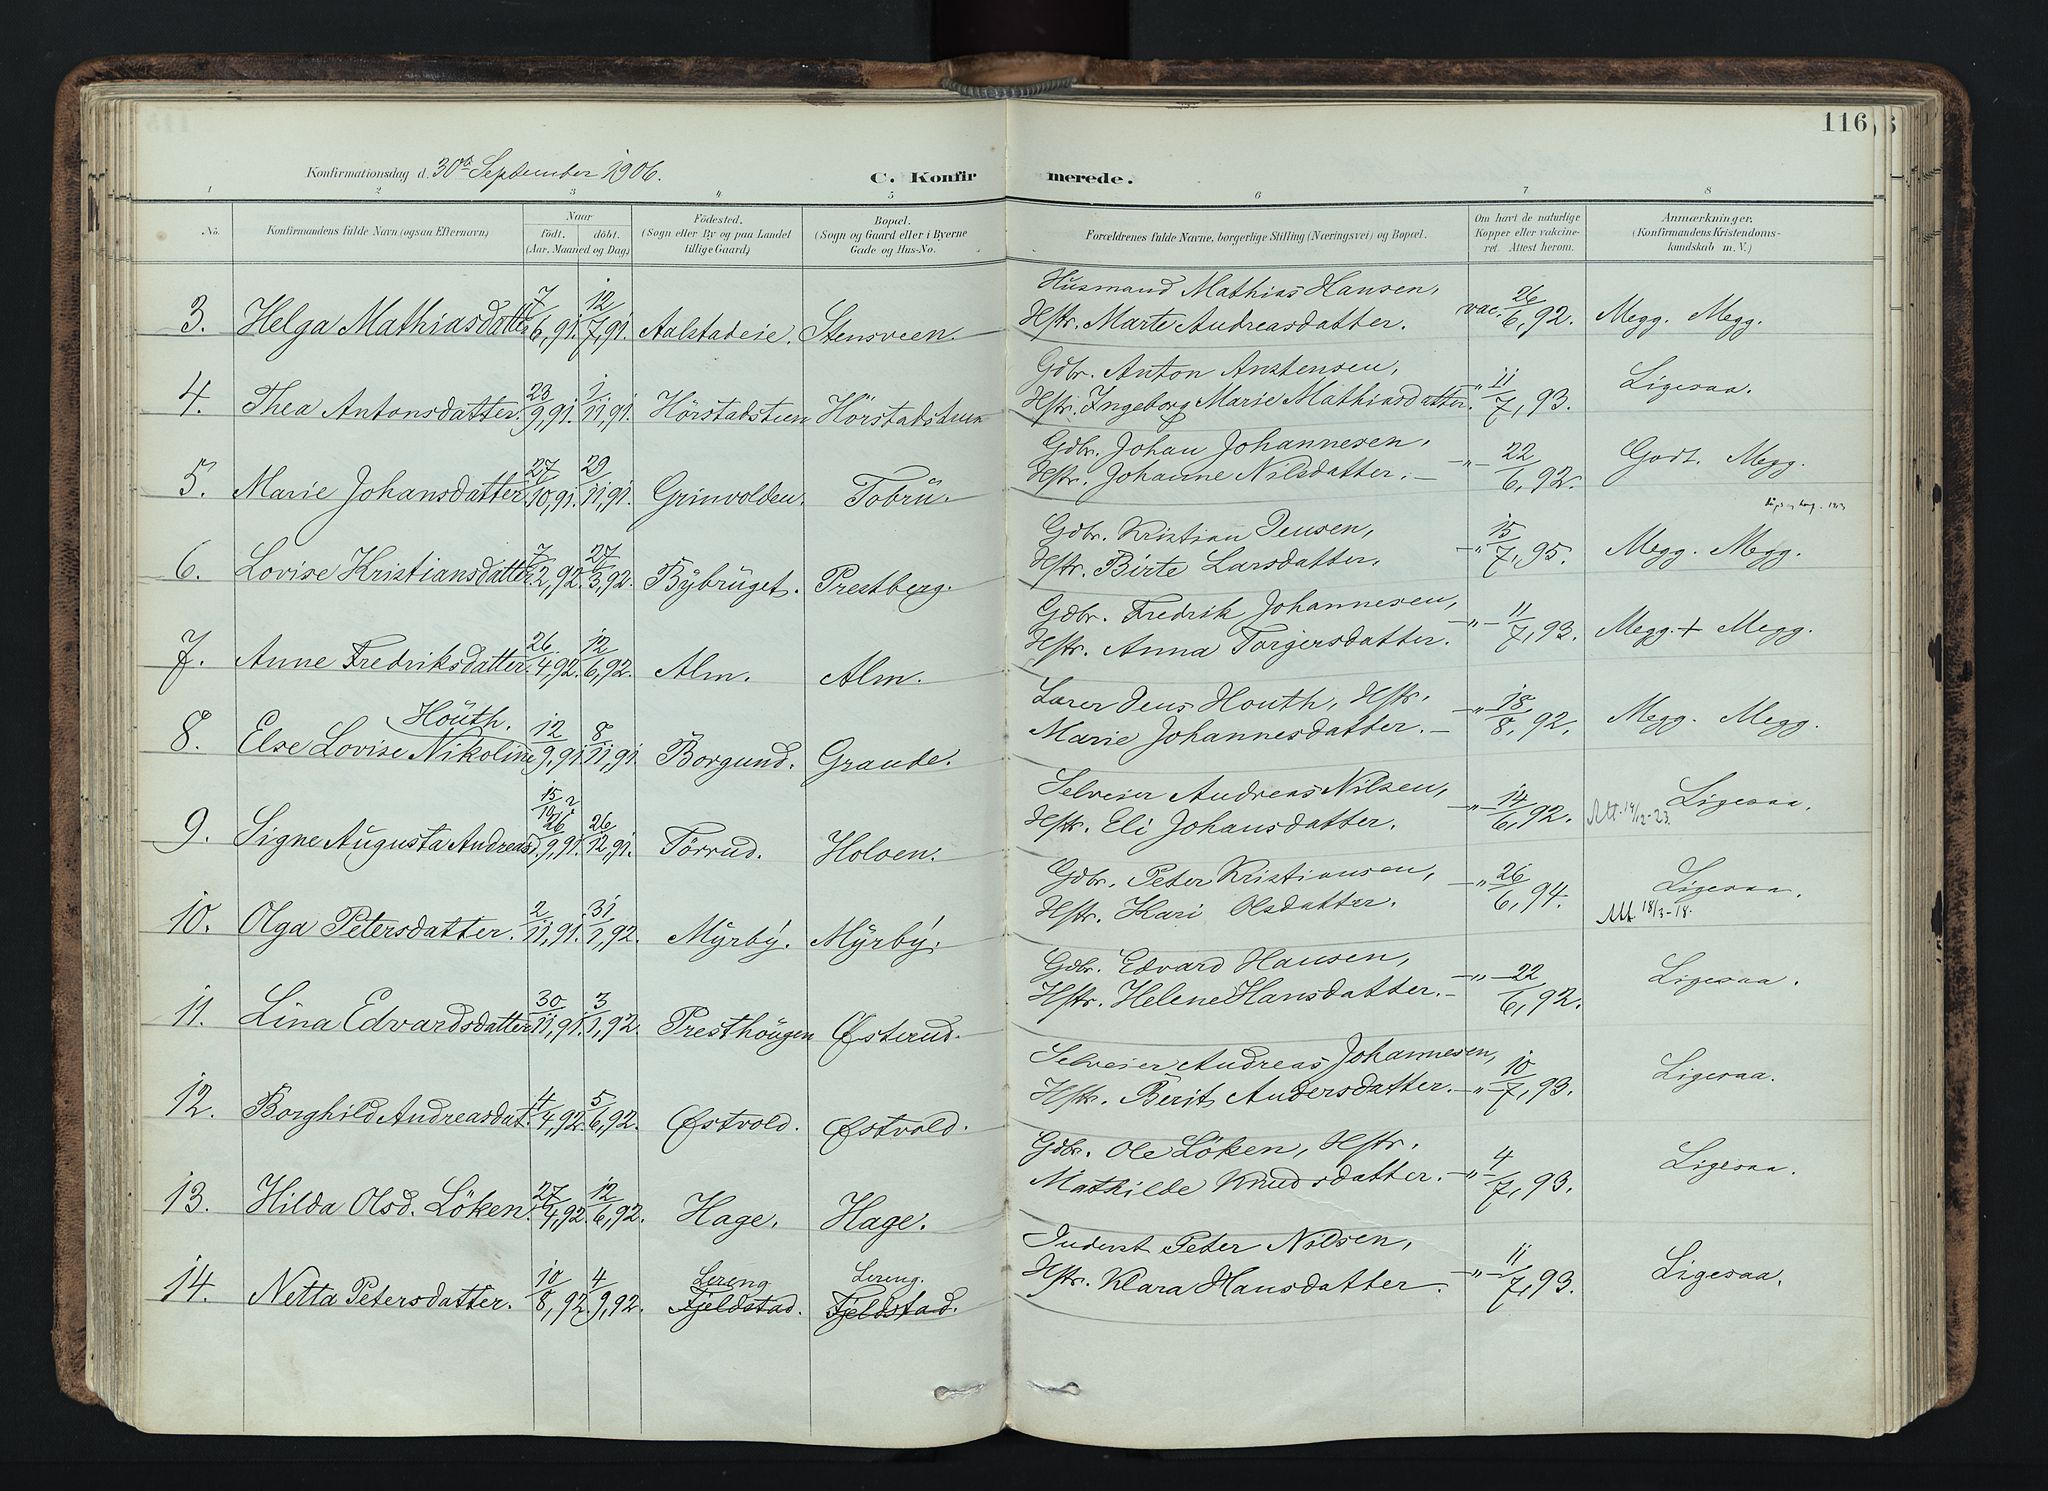 116
Konfirmationsdag d. 30te September 1906.
C. Konfirmerede.
1 2 3 4 5 6 7 8
No.
Konfirmandens fulde Navn (ogsaa Efternavn)
Naar
født. døbt.
(Aar, Maaned og Dag)
Fødested.
(Sogn eller By og paa Landet
tillige Gaard)
Bopæl.
(Sogn og Gaard eller i Byerne
Gade og Hus-No.
Forældrenes fulde Navne, borgerlige Stilling (Næringsvei) og Bopæl.
Om havt de naturlige
Kopper eller vakcine-
ret. Attest herom.
Anmærkninger.
(Konfirmandens Kristendoms-
kundskab m. V.)
3. Helga Mathiasdatter 7/6, 91. 12/7, 91. Aalstadeie. Stensveen. Husmand Mathias Hansen,
Hstr. Marte Andreasdatter. vac. 26/6, 92. Megg. Megg.
4. Thea Antonsdatter. 23/9, 91. 1/11, 91. Hörstadstuen Hörstadstuen Gdbr. Anton Anstensen,
Hstr. Ingeborg Marie Mathiasdatter. " 11/7, 93. Ligesaa.
5. Marie Johansdatter 27/10, 91. 29/11, 91. Grinvolden. Tobrü. Gdbr. Johan Johannesen,
Hstr. Johanne Nilsdatter. -"- 22/6, 92. Godt. Megg.
6. Lovise Kristiansdatter 7/2, 92. 27/3, 92. Bÿbrüget. Prestberg. Gdbr. Kristian Jensen,
Hstr. Birte Larsdatter. -"- 15/7, 95. Megg. Megg.
7. Anne Fredriksdatter. 26/4, 92. 12/6, 92. Alm. Alm. Gdbr. Fredrik Johannesen,
Hstr. Anna Torgersdatter. -"- 11/7, 93. Megg. + Megg.
8. Else Lovise Nikoline Höüth. 12/9, 91. 8/11, 91. Borgund. Graude. Lærer Jens Houth, Hstr.
Marie Johannesdatter. -"- 18/8, 92. Megg. Megg.
9. Signe Augusta Andreasd. 26/9, 91. 26/12, 91. Törrud. Holoen. Selveier Andreas Nilsen,
Hstr. Eli Johansdatter. -"- 14/6, 92. Ligesaa.
Att. 19/12-23.
10. Olga Petersdatter. 2/11, 91. 31/1, 92. Mÿrbÿ. Mÿrbÿ. Gdbr. Peter Kristiansen,
Hstr. Kari Olsdatter. -"- 26/6, 94. Ligesaa.
Att. 18/3-18.
11. Lina Edvardsdatter 30/11, 91. 3/1, 92. Presthöügen Østerud. Gdbr. Edvard Hansen,
Hstr. Helene Hansdatter. -"- 22/6, 92. Ligesaa.
12. Borghild Andreasdat. 4/4, 92. 5/6, 92. Østvold. Østvold. Selveier Andreas Johannesen,
Hstr. Berit Andersdatter. -"- 10/7, 93. Ligesaa.
13. Hilda Olsd. Löken. 27/4, 92. 12/6, 92. Hage. Hage. Gdbr. Ole Löken, Hstr.
Mathilde Knudsdatter. -"- 4/7, 93. Ligesaa.
14. Netta Petersdatter. 10/8, 92. 4/9, 92. Lereng Fjeldstad. Lereng. Fjeldstad. Inderst Peter Nilsen,
Hstr. Klara Hansdatter. -"- 11/7, 93. Ligesaa.